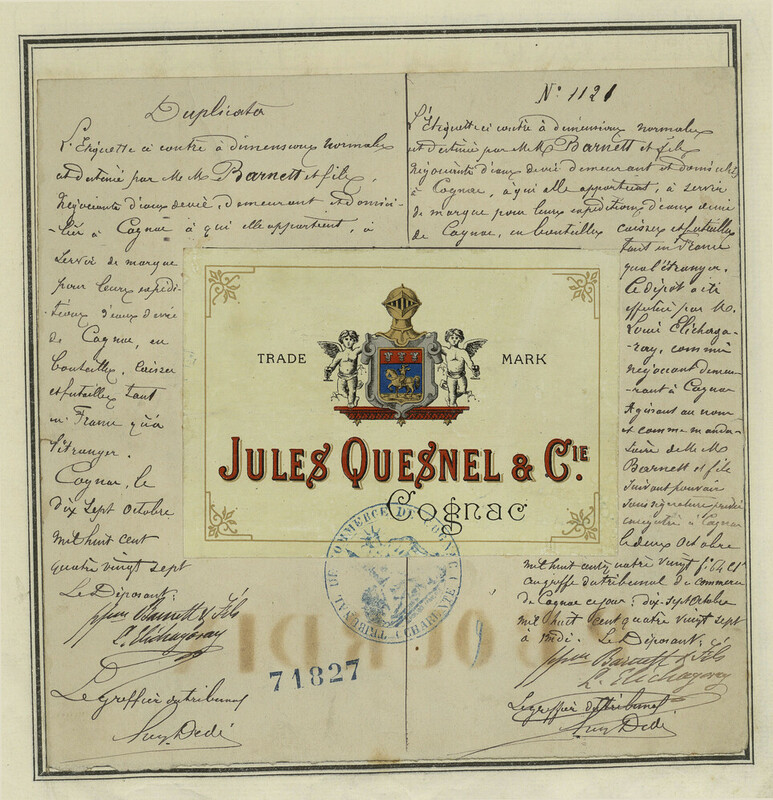 Duplicata
L'Etiquette ci contre à dimensions normales
est destinée par M M Barnett et fils,
négociants d'eaux de vie, demeurant et domici-
-liés à Cognac à qui elle appartient, à
servir de marque
pour leurs expédi-
tions d'eaux de vie
de Cognac, en
bouteilles, caisses
et futailles tant
en France qu'à
l'étranger.
Cognac, le
dix sept Octobre
mil huit cent
quatre vingt sept
Le Déposant:
Barnett & Fils
L. Elichagaray
Le greffier du tribunal
Dédé
N° 1121
L'Etiquette ci contre à dimensions normales
est destinée par M M Barnett et fils
négociants d'eaux de vie demeurant et domiciliés
à Cognac, à qui elle appartient, à servir
de marque pour leurs expéditions d'eaux de vie
de Cognac, en bouteilles caisses et futailles
tant en France
qu'à l'étranger.
Ce dépôt a été
effectué par M.
Louis Elichaga-
-ray, commis
négociant demeu-
-rant à Cognac
Agissant au nom
et comme manda-
taire de M M
Barnett et fils
suivant pouvoir
sous signature privée
à Cognac
le deux Octobre
mil huit cent quatre vingt sept
au greffe du tribunal de commerce
de Cognac ce jour: dix-sept Octobre
mil huit cent quatre vingt sept
à midi. Le Déposant:
Barnett & Fils
L. Elichagaray
Le greffier du tribunal
Dédé
TRADE MARK
JULES QUESNEL & CIE.
Cognac
TRIBUNAL DE COMMERCE DE COGNAC
(CHARENTE)
71827